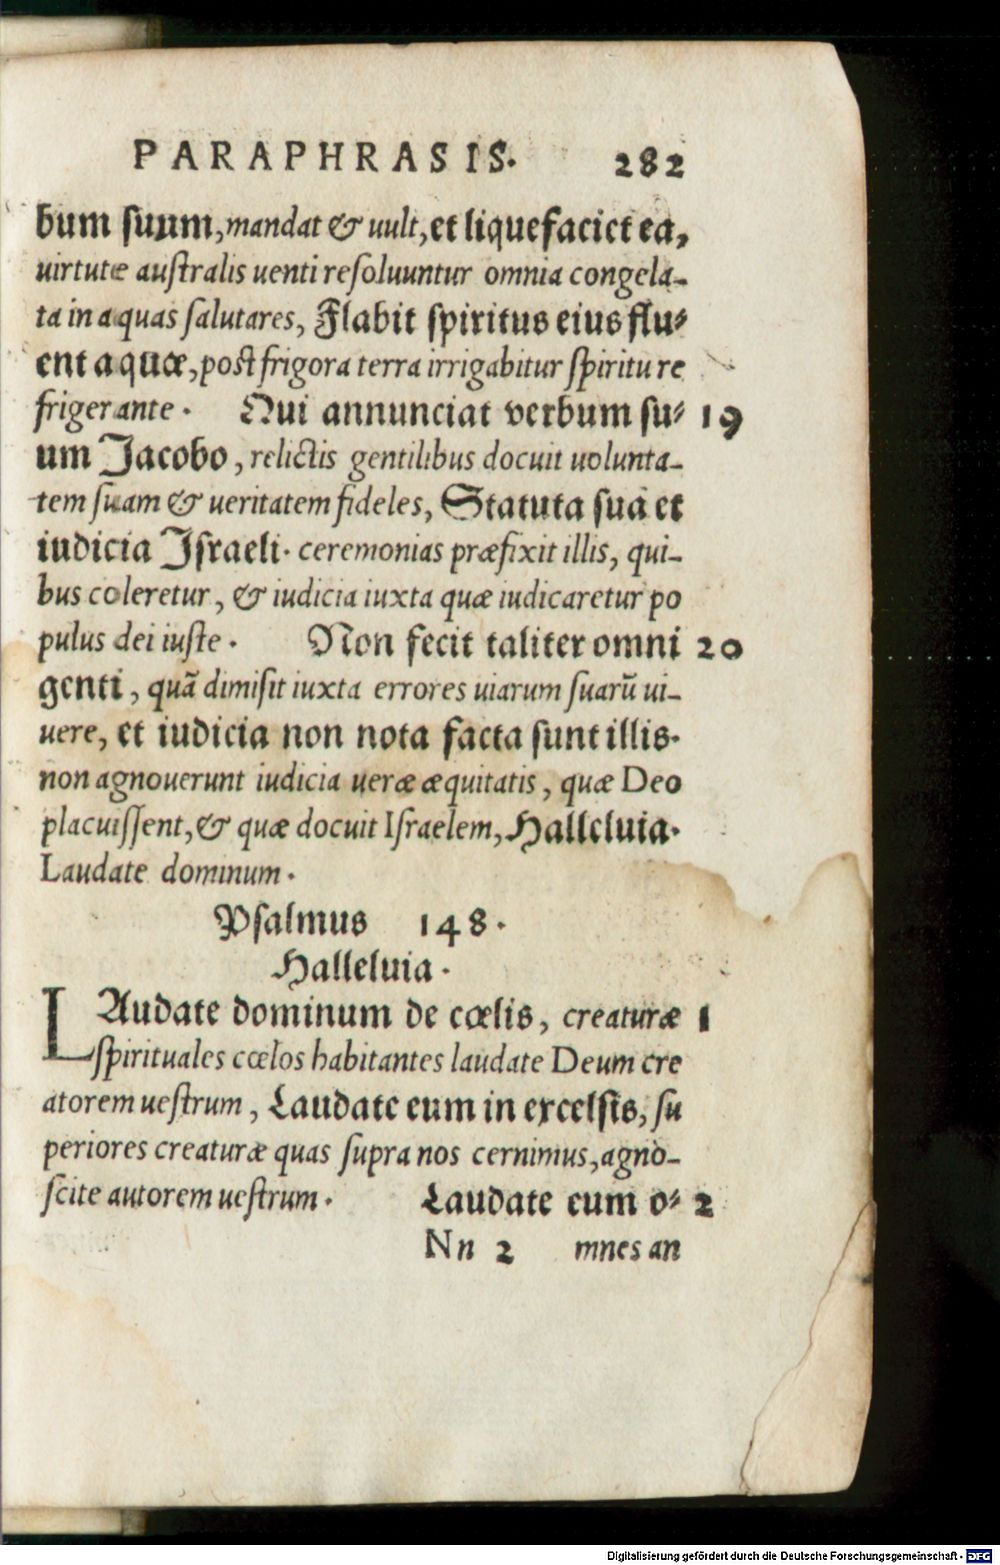 PARAPHRASIS. 282
bum suum, mandat & uult, et liquefaciet ea,
uirtute australis uenti resoluuntur omnia congela-
ta in aquas salutares, Flabit spiritus eius flu⸗
ent aquæ, post frigora terra irrigabitur spiritu re
frigerante. Qui annunciat verbum su⸗ 19
um Jacobo, relictis gentilibus docuit uolunta-
tem suam & ueritatem fideles, Statuta sua et
iudicia Israeli. ceremonias præfixit illis, qui-
bus coleretur, & iudicia iuxta quæ iudicaretur po
pulus dei iuste. Non fecit taliter omni 20
genti, quã dimisit iuxta errores uiarum suarũ ui-
uere, et iudicia non nota facta sunt illis.
non agnouerunt iudicia ueræ æquitatis, quæ Deo
placuissent, & quæ docuit Israelem, Halleluia.
Laudate dominum.
Psalmus 148.
Halleluia.
LAudate dominum de cœlis, creaturæ 1
spirituales cœlos habitantes laudate Deum cre
atorem uestrum, Laudate eum in excelsis, su
periores creaturæ quas supra nos cernimus, agno-
scite autorem uestrum. Laudate eum o⸗ 2
Nn 2 mnes an
Digitalisierung gefördert durch die Deutsche Forschungsgemeinschaft - DFG